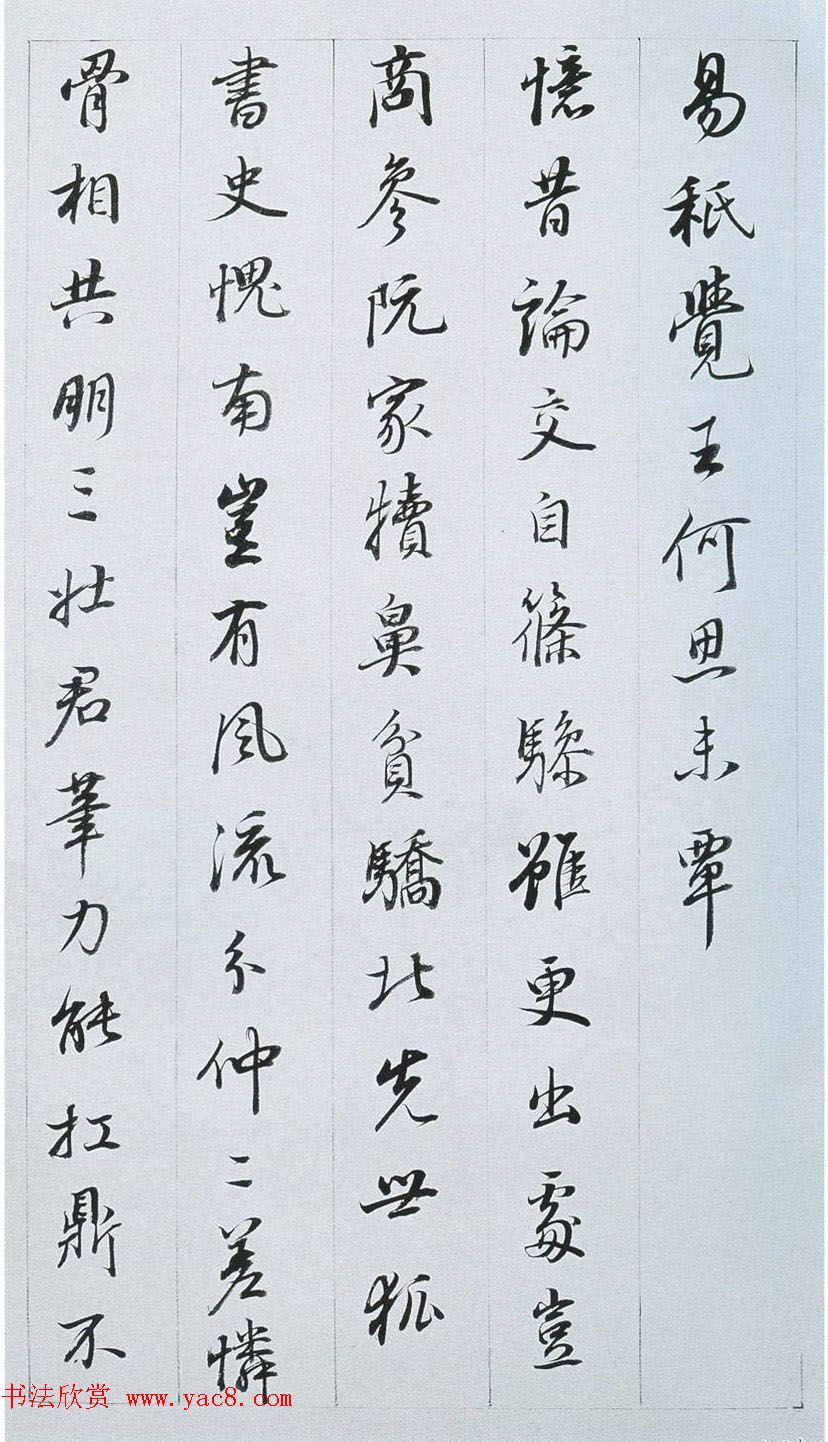 易秖覺王何思未覃
憶昔論交自篠驂雖更出處豈
商參阮家犢鼻貧驕北先世狐
書史愧南董有風流分仲二差憐
骨相共朋三壯君筆力能扛鼎不
书法欣赏 www.yac8.com